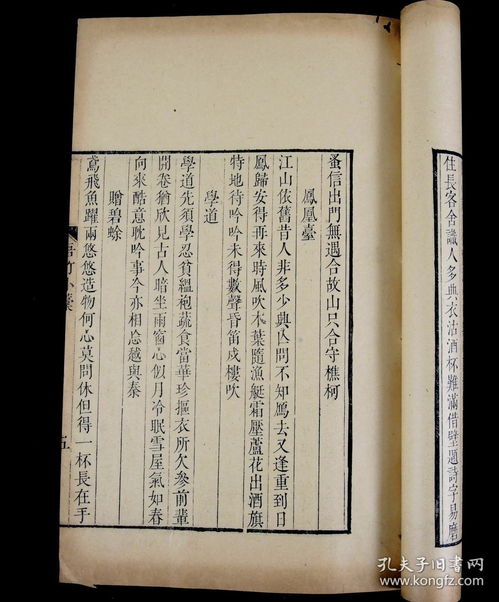 住長客舍識人多典衣沽酒杯難滿借壁題詩字易磨
蚤信出門無遇合故山只合守樵柯
鳳凰臺
江山依舊昔人非多少興亾問不知鳥去又逢重到日
鳳歸安得再來時風吹木葉隨漁艇霜壓蘆花出酒旗
特地待吟吟未得數聲昏笛戍樓吹
學道
學道先須學忍貧縕袍蔬食當華珍摳衣所欠參前輩
開卷猶欣見古人暗坐雨窗心似月冷眠雪屋氣如春
向來酷意耽吟事今亦相忘越與秦
贈碧蜍
鳶飛魚躍兩悠悠造物何心莫問休但得一杯長在手
吾竹小藁
五
孔夫子旧书网
www.kongfz.com